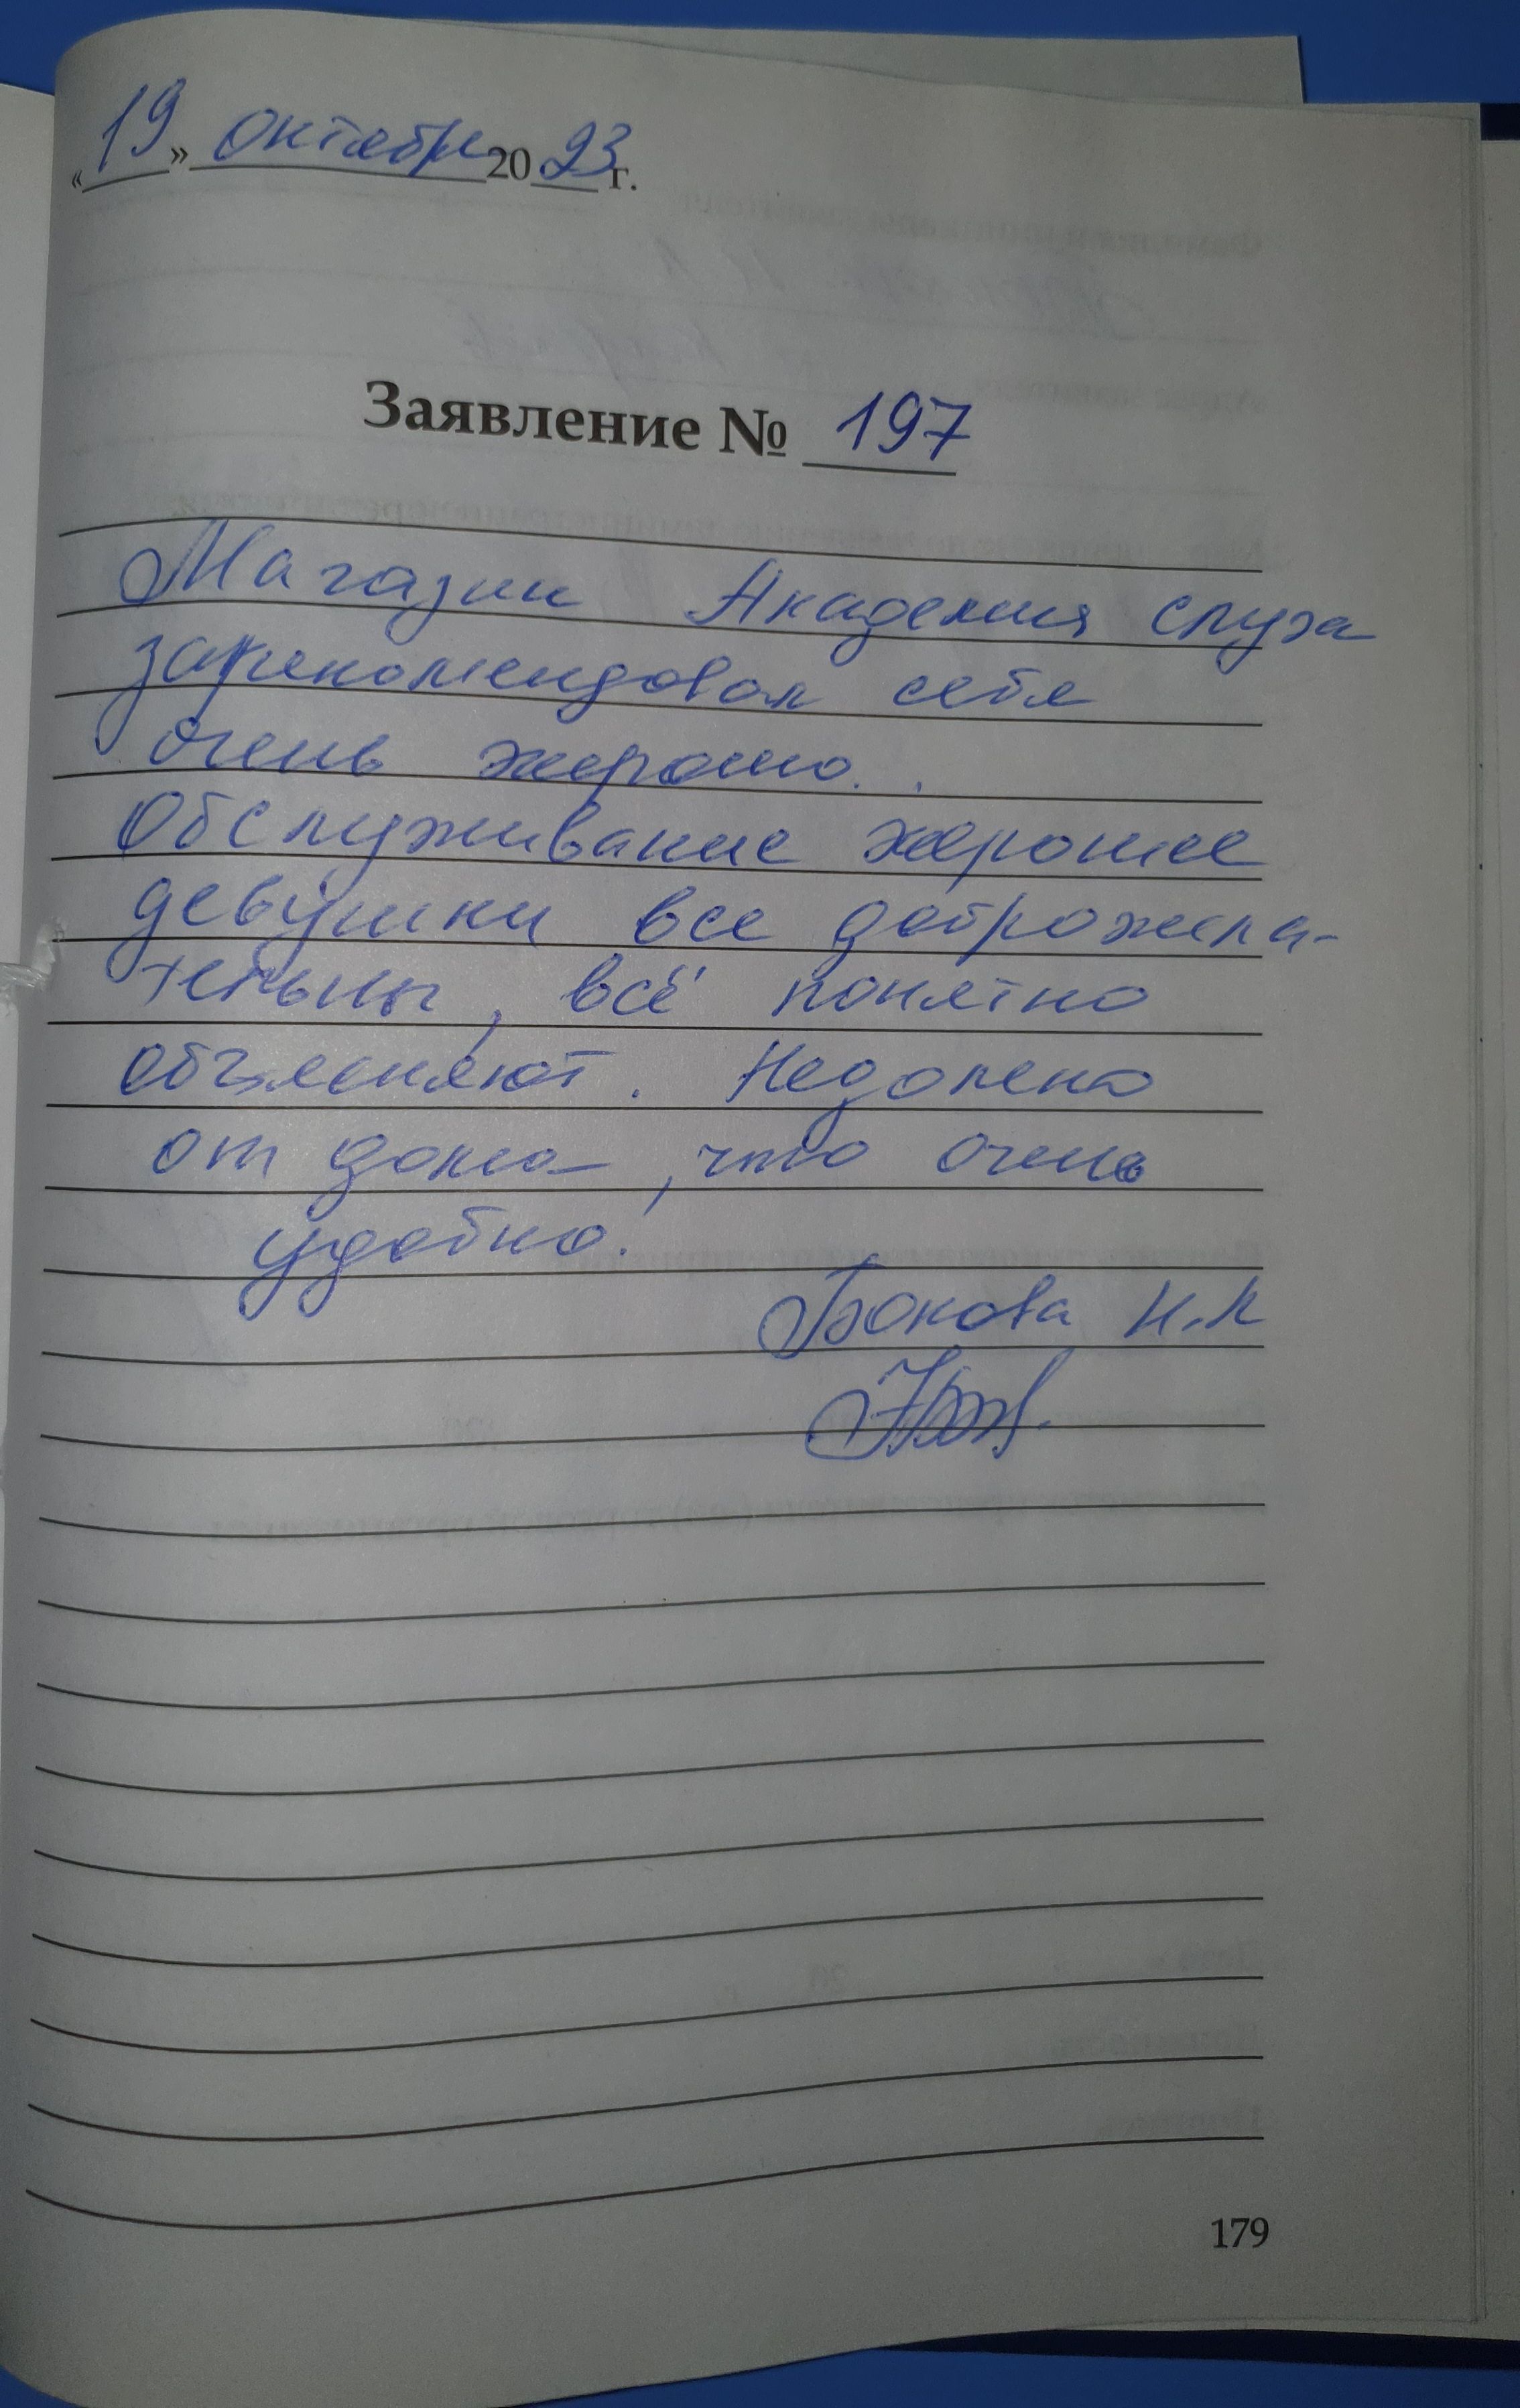 «19» октября 2023 г.
Заявление № 197
Магазин Академия слуха
зарекомендовал себя
очень хорошо.
Обслуживание хорошее
девушки все доброжела-
тельны, всё понятно
объясняют. Недалеко
от дома, что очень
удобно.
Бокова Н.Л
179